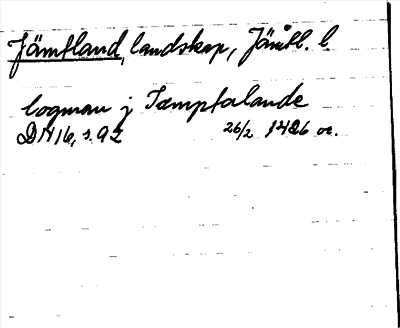 Jämtland, landskap, Jämtl. l.
logman j Iæmptalande
DN 16, s. 92 26/2 1426 or.